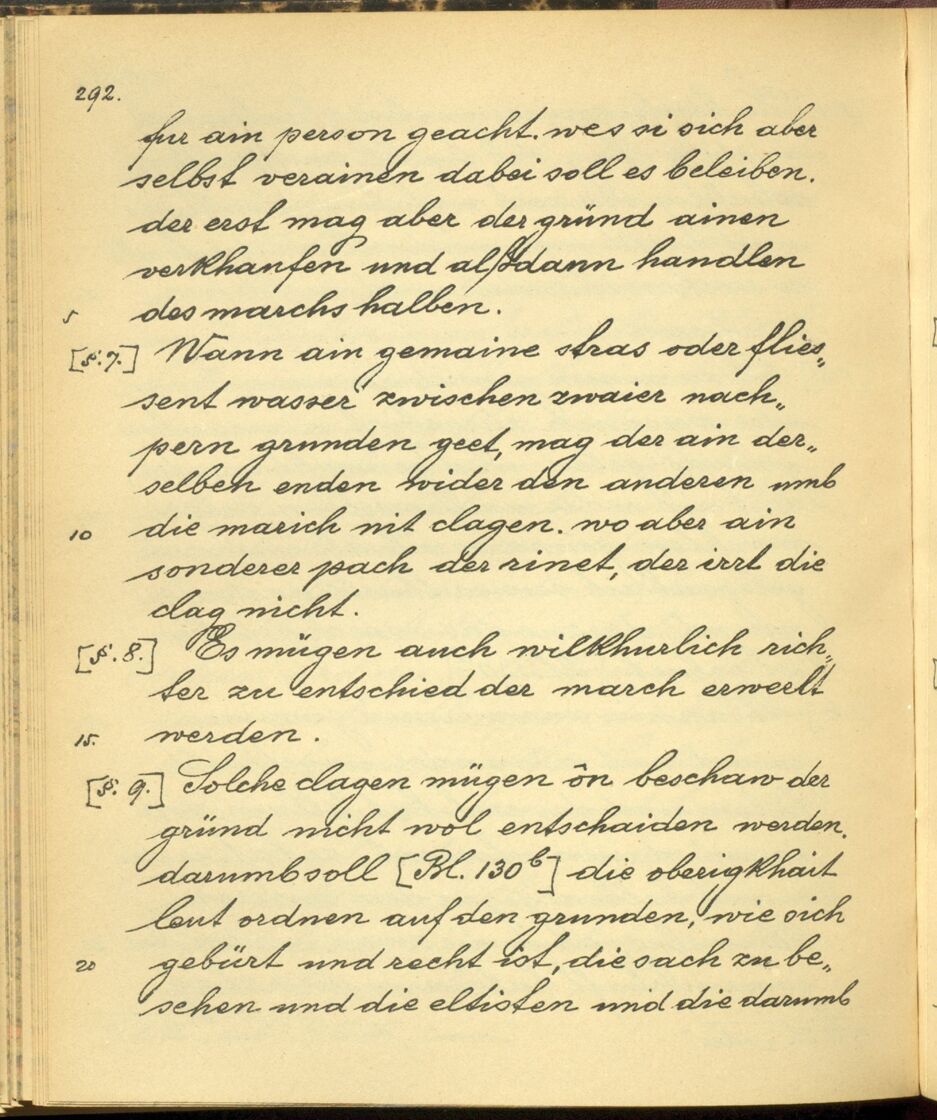 292.
fur ain person geacht. wes si sich aber
selbst verainen dabei soll es beleiben.
der erst mag aber der gründ ainen
verkhaufen und alßdann handlen
5 des marchs halben.
[§. 7.] Wann ain gemaine stras oder flies„
sent wasser zwischen zwaier nach„
pern grunden geet, mag der ain der„
selben enden wider den anderen umb
10 die marich nit clagen. wo aber ain
sonderer pach der rinet, der irrt die
clag nicht.
[§. 8.] Es mügen auch wilkhurlich rich„
ter zu entschied der march erwerlt
15. werden.
[§. 9.] Solche clagen mügen ôn beschaw der
gründ nicht wol entschaiden werden.
darumb soll [Bl. 130b] die oberigkhait
leut ordnen auf den grunden, wie sich
20 gebürt und recht ist, die sach zu be„
sehen und die eltisten und die darumb